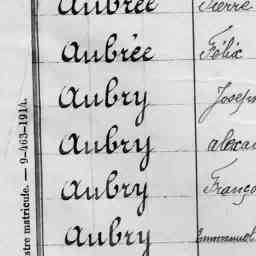 Aubrée Pierre
Aubrée Félix
Aubry Joseph
Aubry
Aubry
Aubry Emmanuel
matricule. — 9-463-1914.